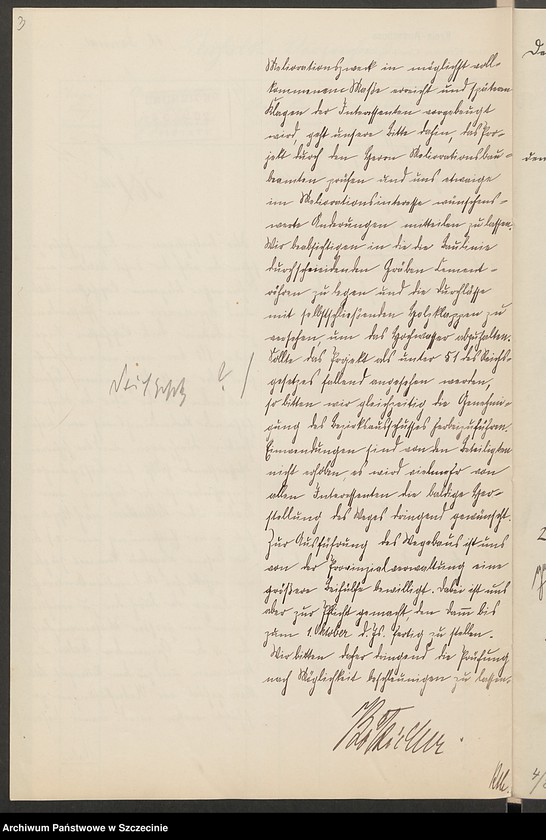 3
Meliorationszweck in möglichst voll-
kommenem Maße erreicht und späteren
Klagen der Interessenten vorgebeugt
wird, geht unsere Bitte dahin, das Pro-
jekt durch den Herrn Meliorationsbau-
beamten prüfen und uns etwaige
im Meliorationsinteresse wünschens-
werte Änderungen mitteilen zu lassen.
Wir beabsichtigen in die die Baulinie
durchschneidenden Gräben Cement-
röhren zu legen und die Durchlässe
mit selbstschließenden Holzklappen zu
versehen, um das Hochwasser abzuhalten.
Sollte das Projekt als unter § 1 des Reichs-
gesetzes fallend angesehen werden,
so bitten wir gleichzeitig die Genehmi-
gung des Bezirksausschusses herbeizuführen.
Einwendungen sind von den Beteiligten
nicht erhoben, es wird vielmehr von
allen Interessenten die baldige Her-
stellung des Weges dringend gewünscht.
Zur Ausführung des Wegebaus ist uns
von der Provinzialverwaltung eine
größere Beihülfe bewilligt. Dabei ist uns
aber zur Pflicht gemacht, den Damm bis
zum 1. Oktober d. Js. fertig zu stellen.
Wir bitten daher dringend die Prüfung
nach Möglichkeit beschleunigen zu lassen.
? /
Archiwum Państwowe w Szczecinie